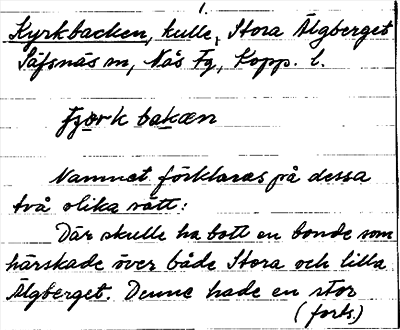 1.
Kyrkbacken, kulle, Stora Älgberget
Säfsnäs sn, Nås Fg, Kopp. l.
Namnet förklaras på dessa
två olika sätt:
Där skulle ha bott en bonde som
härskade över både Stora och Lilla
Älgberget. Denne hade en stor
(forts.)